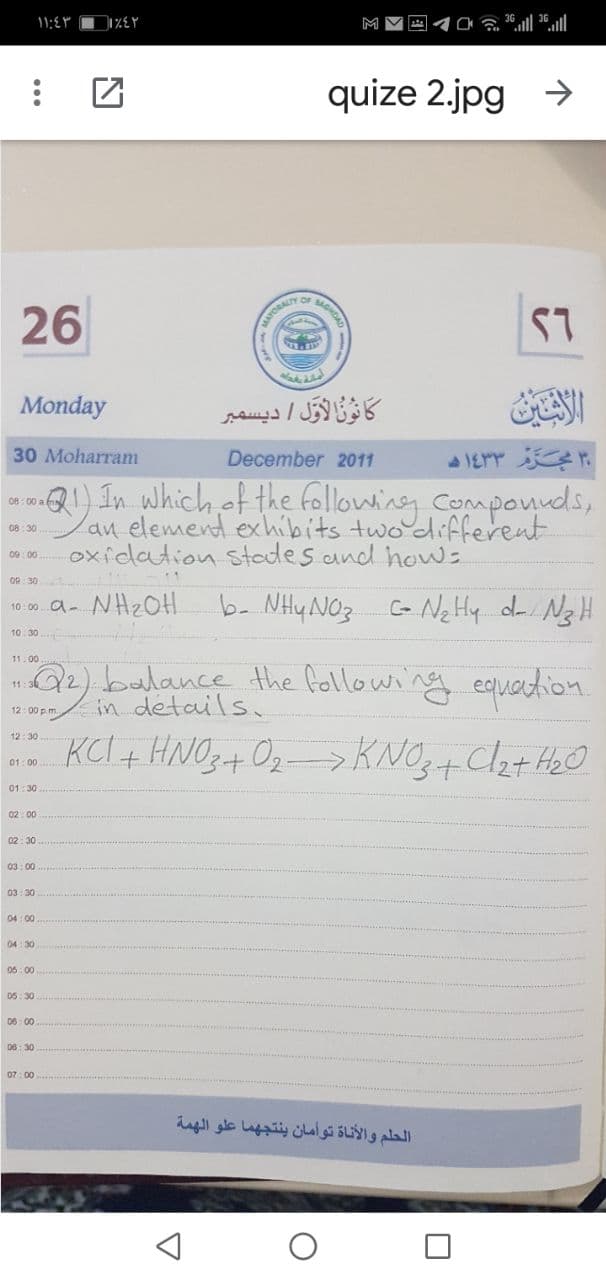 ١١:٤٣ ٪٤٢ 3G 3G
quize 2.jpg
26 ٢٦
MAYORALTY OF BAGHDAD
أمانة بغداد
Monday كانون الأول / ديسمبر الأثنين
30 Moharram December 2011 ٣٠ محرم ١٤٣٣ هـ
08 : 00 a Q1) In which of the following compounds,
08 : 30 an element exhibits two different
09 : 00 oxidation states and how:
09 : 30
10 : 00 a- NH2OH b- NH4NO3 c- N2H4 d- N3H
10 : 30
11 : 00
11 : 30 Q2) balance the following equation
12 : 00 p.m. in details.
12 : 30
01 : 00 KCl + HNO3 + O2 → KNO3 + Cl2 + H2O
01 : 30
02 : 00
02 : 30
03 : 00
03 : 30
04 : 00
04 : 30
05 : 00
05 : 30
06 : 00
06 : 30
07 : 00
الحلم والأناة توأمان ينتجهما علو الهمة